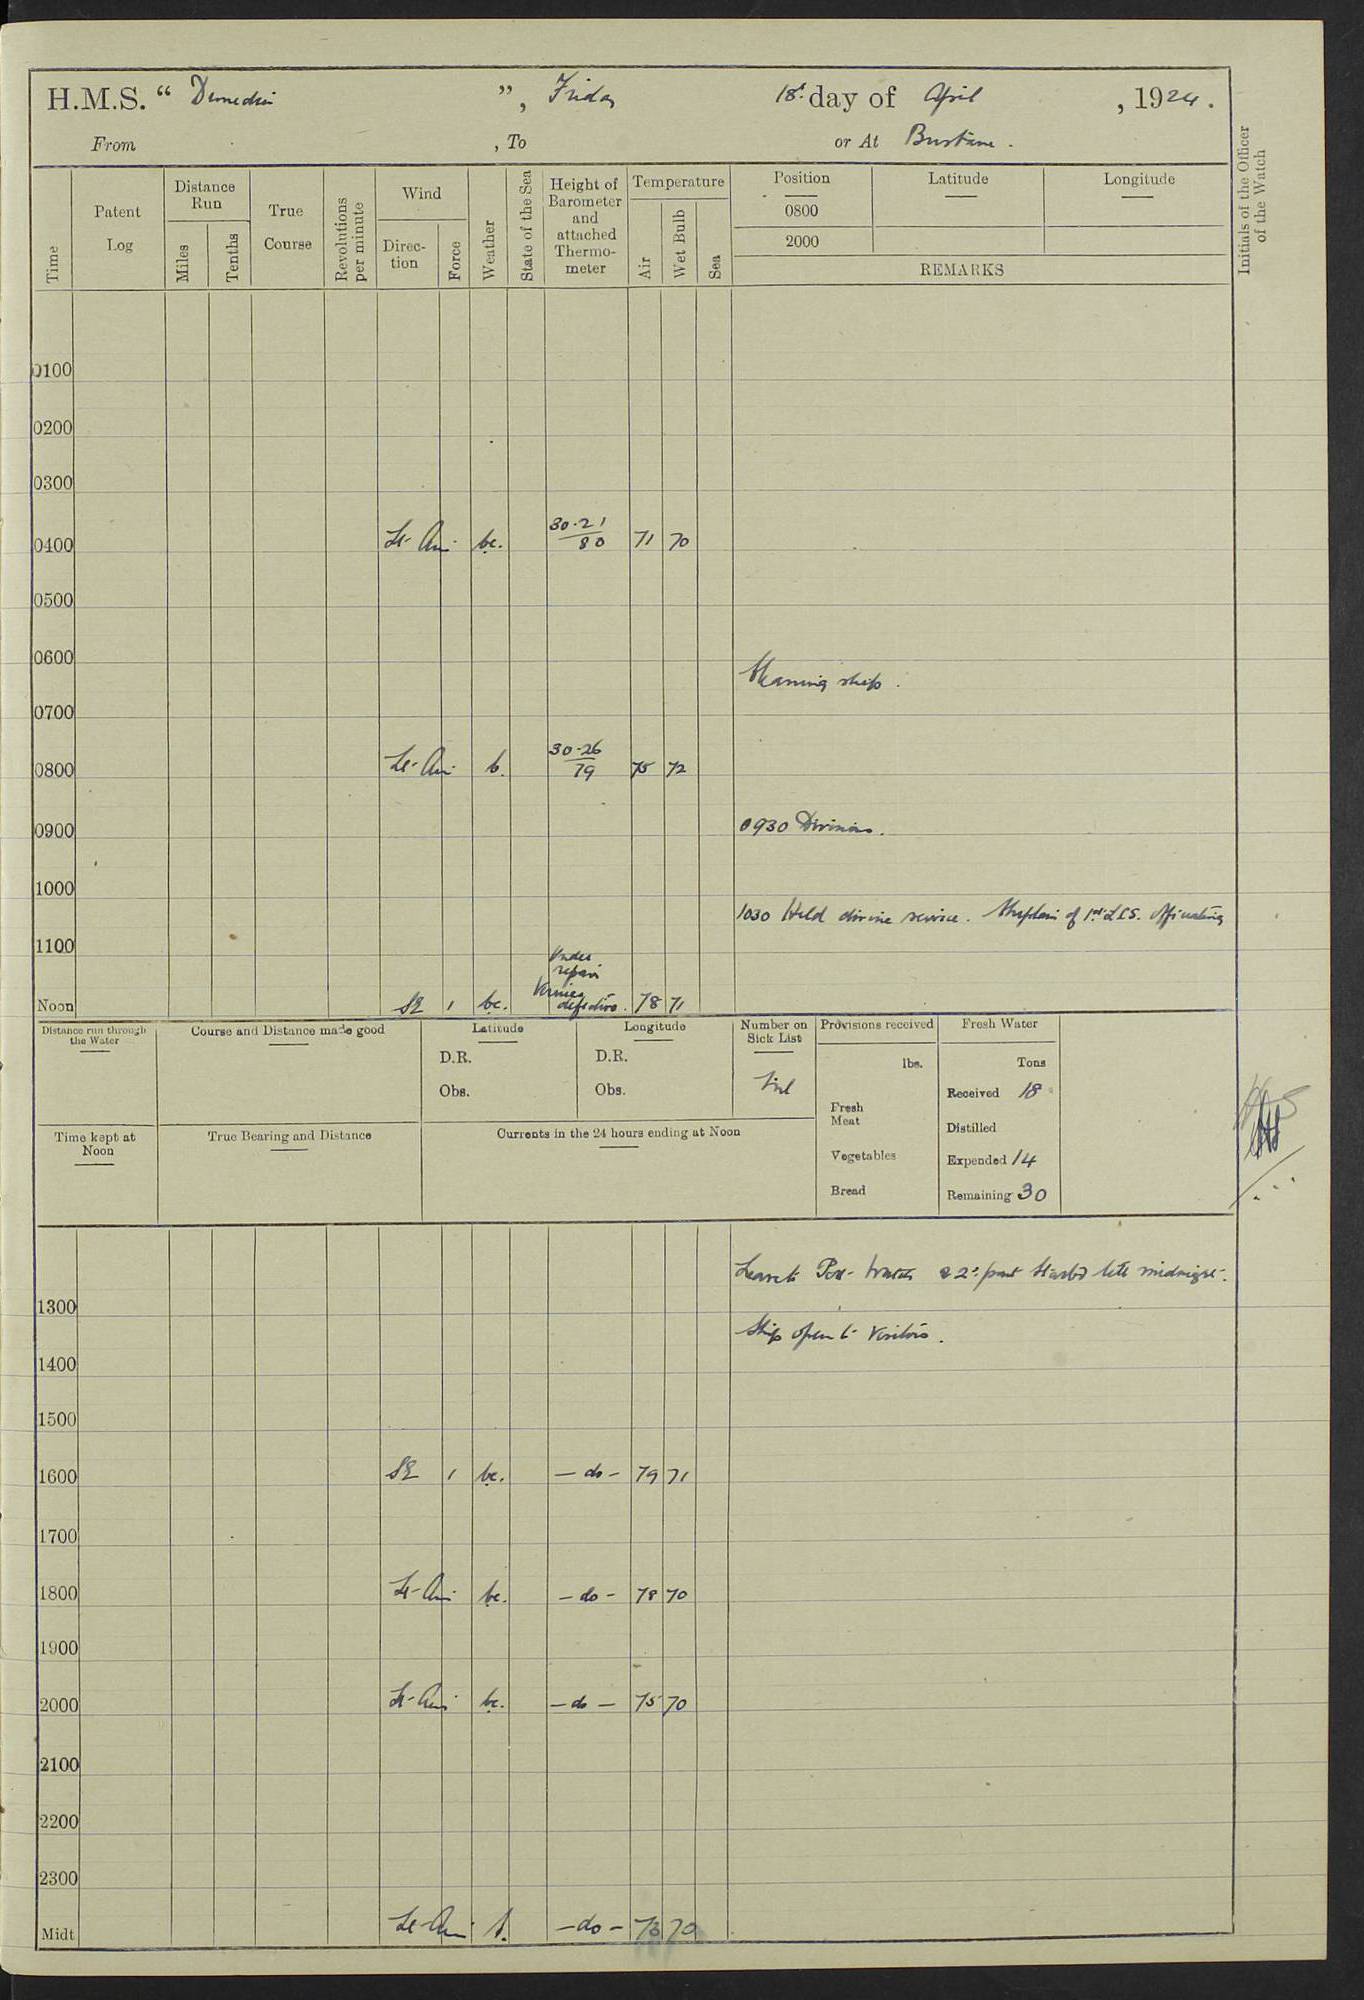 H.M.S. “ Dunedin ”, Friday 18th day of April , 1924.
From , To or At Brisbane.
Time
Patent Log
Distance Run
Miles
Tenths
True Course
Revolutions per minute
Wind
Direction
Force
Weather
State of the Sea
Height of Barometer and attached Thermometer
Temperature
Air
Wet Bulb
Sea
Position Latitude Longitude
0800
2000
REMARKS
Initials of the Officer of the Watch
0100
0200
0300
0400 Lt Air bc. 30.21/80 71 70
0500
0600
Cleaning ship.
0700
0800 Lt Air b. 30.26/79 75 72
0900 0930 Divisions.
1000
1030 Held divine service. Chaplain of 1st L.C.S. officiating
1100
Under repair
Vernier defective.
Noon SE 1 bc. 78 71
Distance run through the Water
Course and Distance made good
Latitude
D.R.
Obs.
Longitude
D.R.
Obs.
Number on Sick List
Nil
Provisions received
lbs.
Fresh Meat
Vegetables
Bread
Fresh Water
Tons
Received 18
Distilled
Expended 14
Remaining 30
Time kept at Noon
True Bearing and Distance
Currents in the 24 hours ending at Noon
Leave to Port watch & 2nd part Starbd till midnight.
1300
Ship open to visitors.
1400
1500
1600 SE 1 bc. – do – 79 71
1700
1800 Lt Air bc. – do – 78 70
1900
2000 Lt Air bc. – do – 75 70
2100
2200
2300
Midt Lt Air b. – do – 73 70